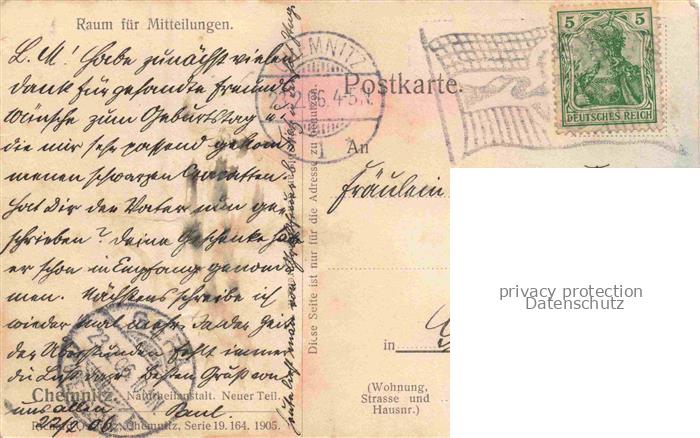 Raum für Mitteilungen.
L. M! Habe zunächst vielen
Dank für gesandte Freund
Wünsche zum Geburtstag u.
die mir sehr passend gekom
menen schwarzen Crawatten.
Hat Dir der Vater nun ge-
schrieben? Deine Geschenke hatte
er schon in Empfang genom
men. Nächstens schreibe ich
wieder mal In der Zeit
der Überstunden fehlt immer
die Lust dazu. Besten Gruß von
uns allen Paul.
22/2.06.
Chemnitz. Naturheilanstalt. Neuer Teil.
Chemnitz, Serie 19. 164. 1905.
Diese Seite ist nur für die Adresse zu benutzen.
CHEMNITZ
2.06. 4-5 N.
1
Postkarte.
An
Fräulein
in
(Wohnung,
Strasse und
Hausnr.)
5 5
DEUTSCHES REICH
privacy protection
Datenschutz